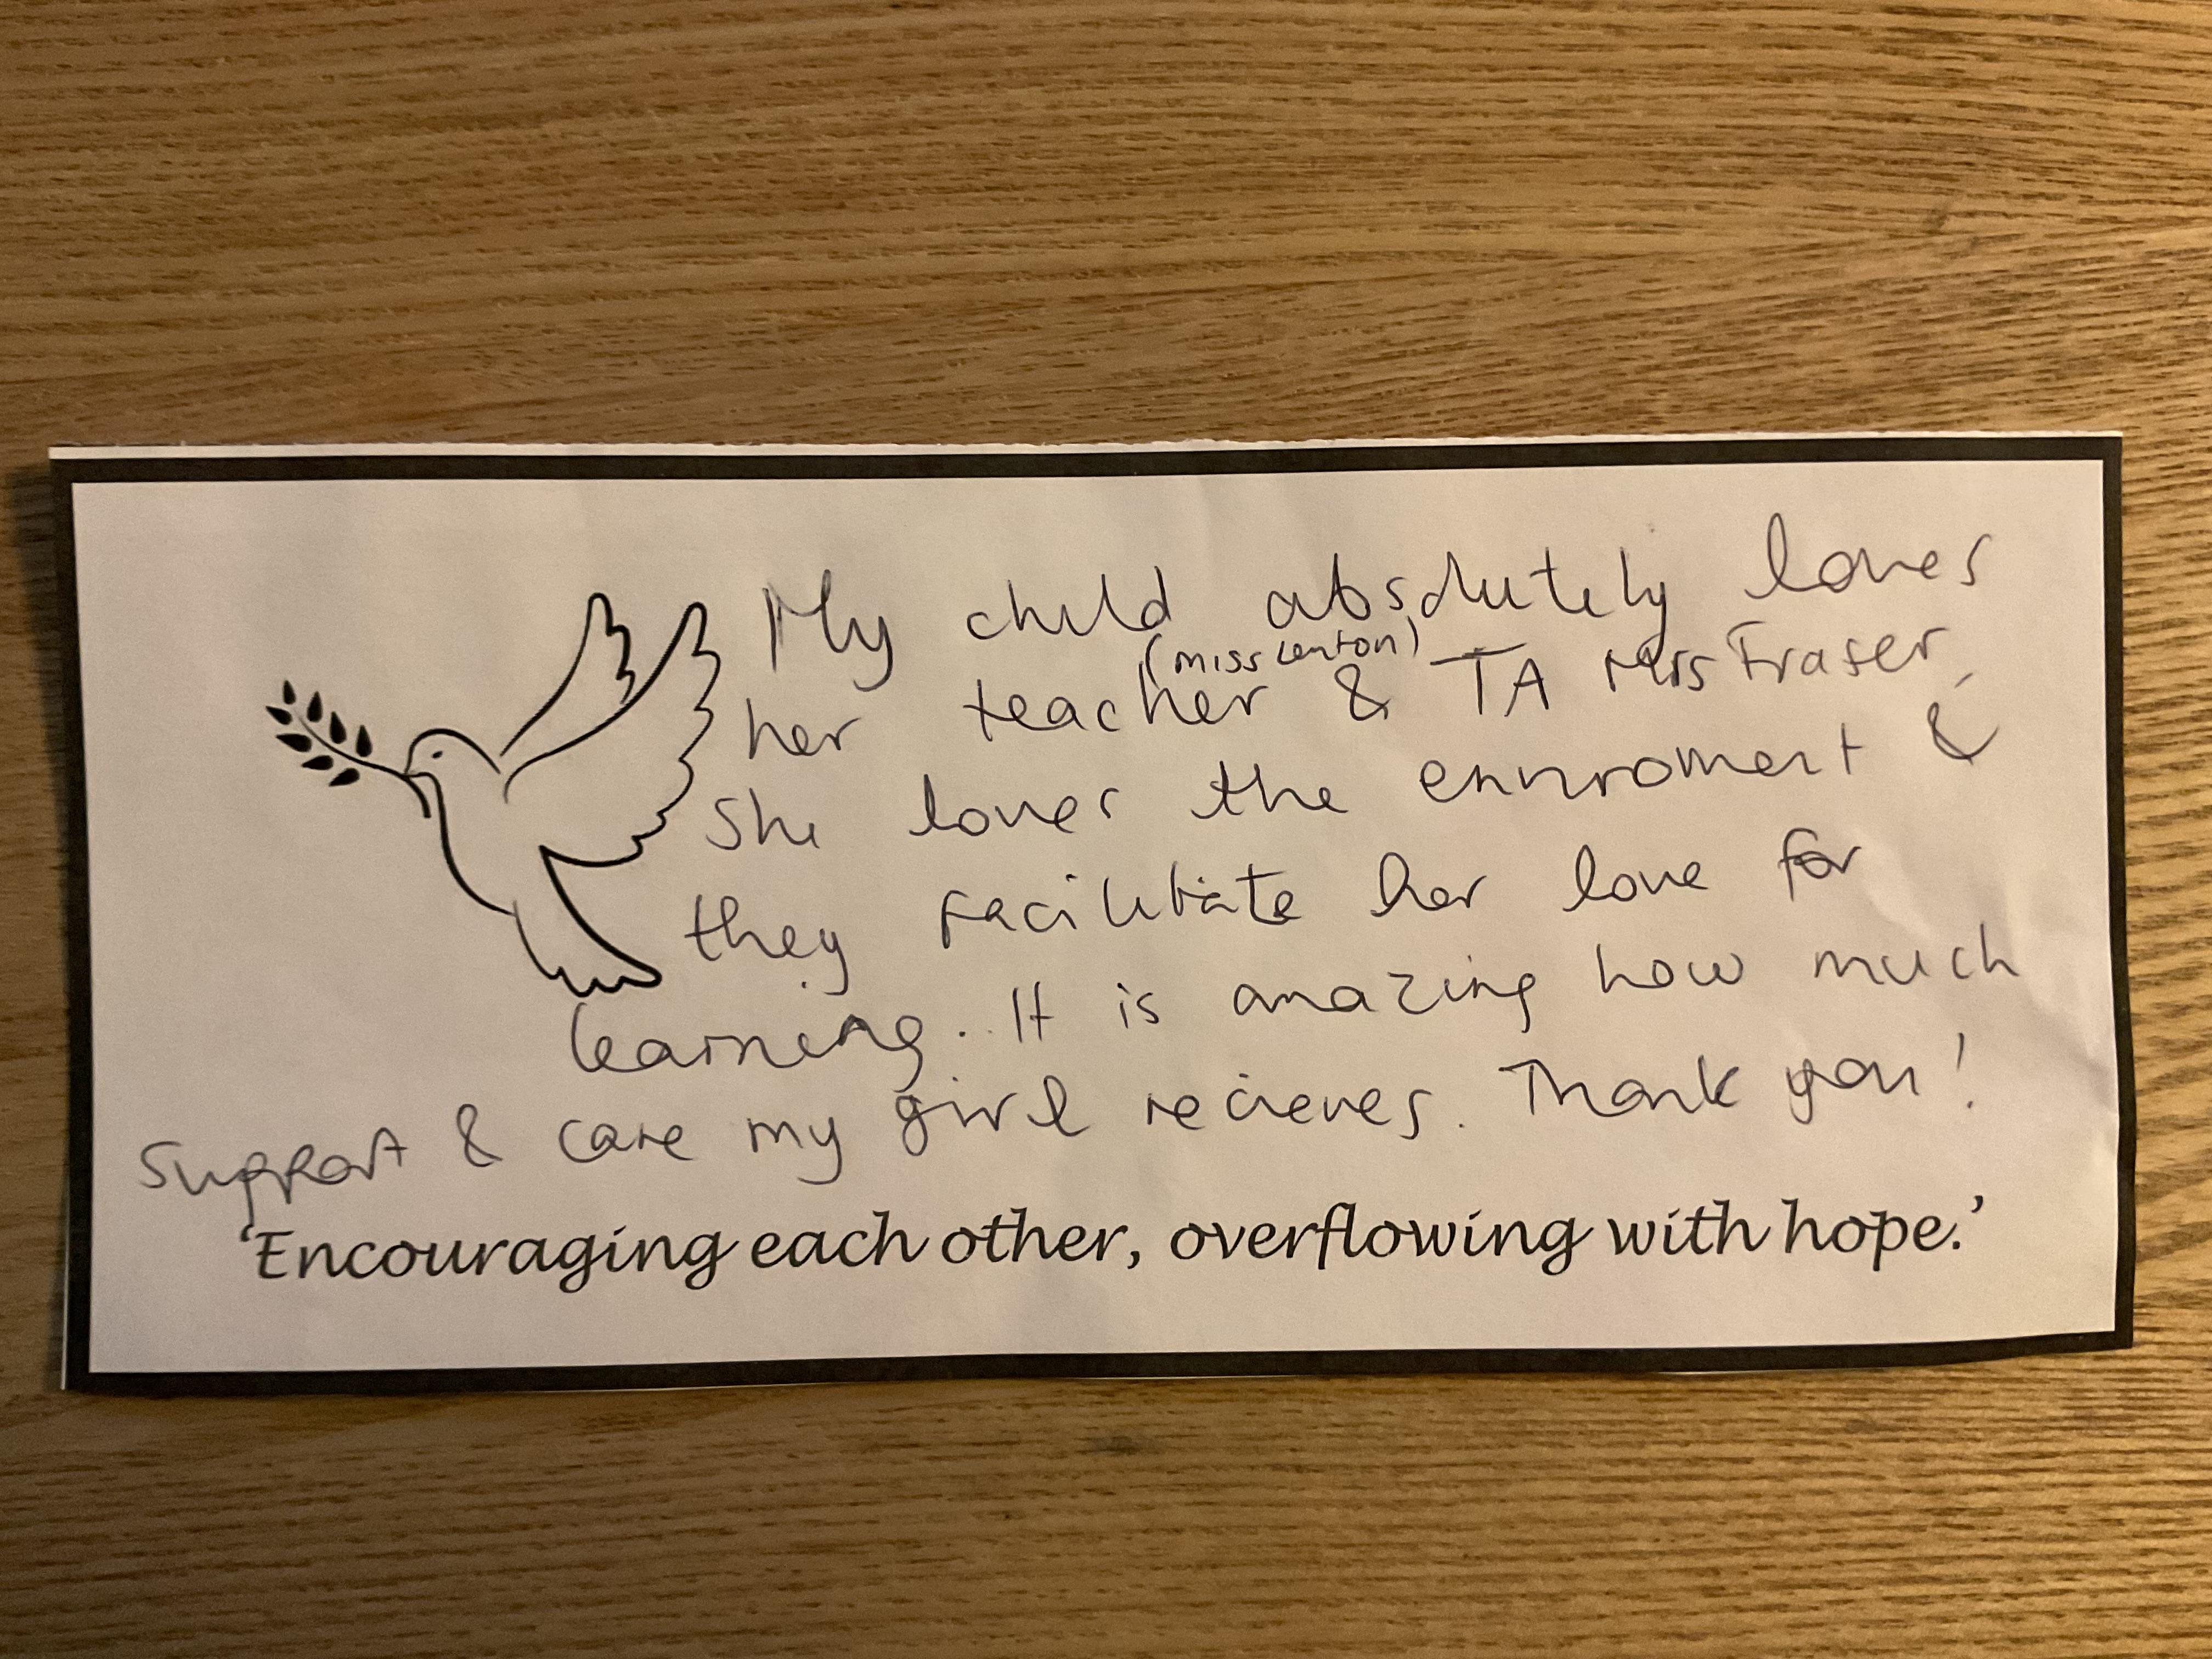 My child absolutely loves
(miss Lenton)
her teacher & TA Mrs Fraser,
She loves the enviroment &
they facilitate her love for
learning. It is amazing how much
support & care my girl recieves. Thank you!
'Encouraging each other, overflowing with hope.'